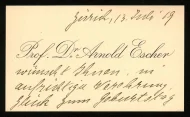 Zürich, 13. Juli 19
Prof. Dr. Arnold Escher
wünscht Ihnen, in
aufrichtiger Verehrung,
Glück zum Geburtstag